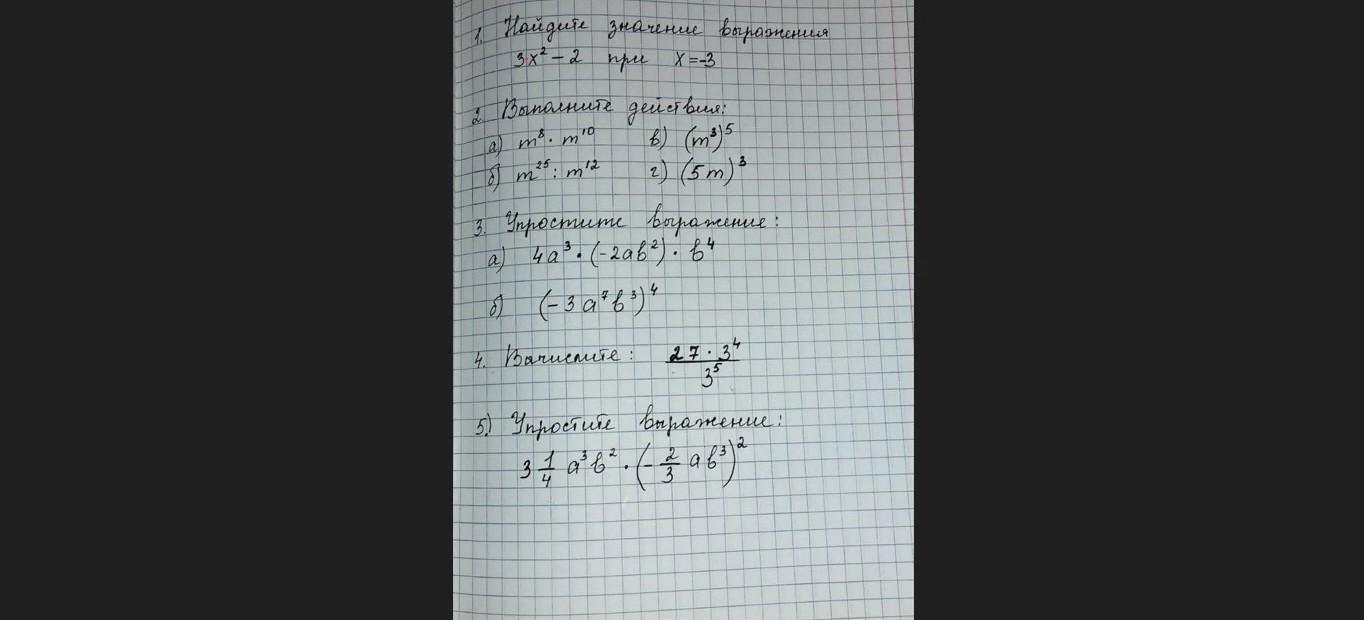 1. Найдите значение выражения
3x² - 2 при x = -3
2. Выполните действия:
а) m⁸ · m¹⁰ в) (m³)⁵
б) m²⁵ : m¹² г) (5m)³
3. Упростите выражение:
а) 4a³ · (-2ab²) · b⁴
б) (-3a⁷b³)⁴
4. Вычислите: 27 · 3⁴ / 3⁵
5.) Упростите выражение:
3 1/4 a³b² · (-2/3 ab³)²